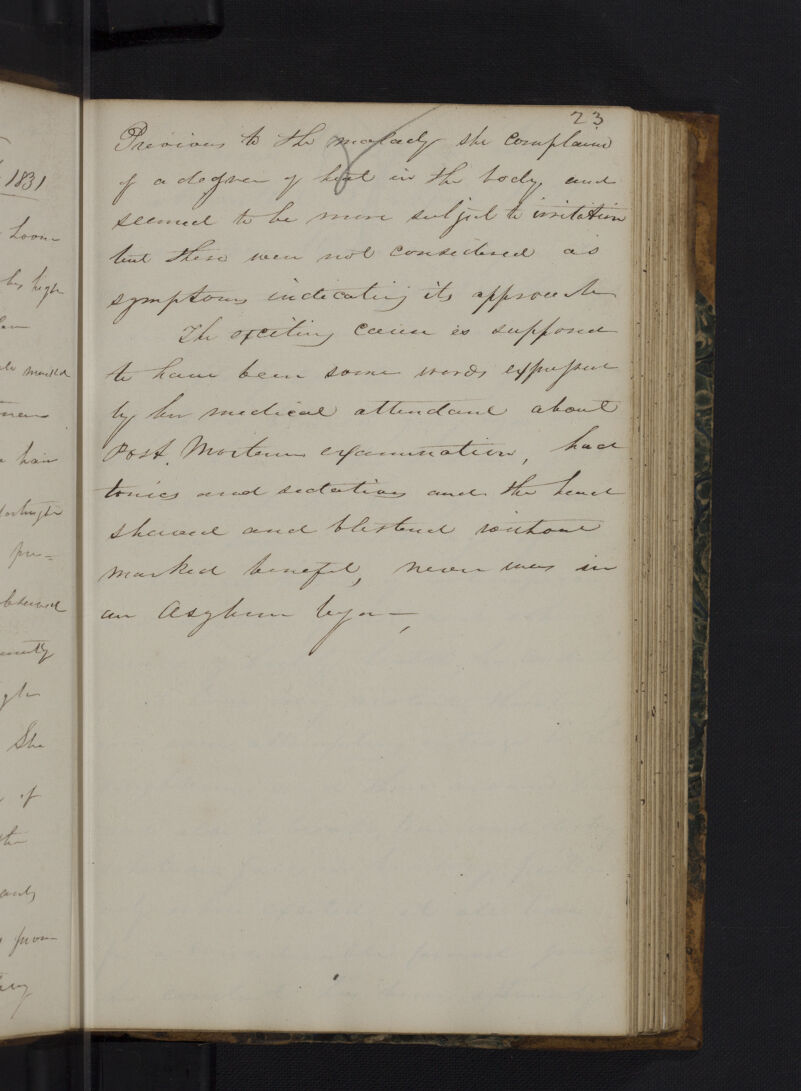 1831
23
Previous to the malady she complained
of a degree of heat in the body, and
seemed to be more subject to irritation
but these were not considered as
symptoms indicating its approach
The exciting cause is supposed
to have been some words expressed
by her medical attendant about
Post. Mortem examination, had
tonics and sedatives and the head
shaved and blistered without
marked benefit, never was in
an Asylum
She
of